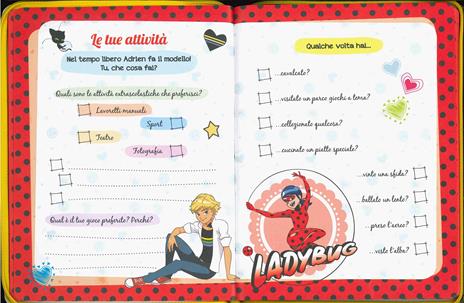 Le tue attività
Nel tempo libero Adrien fa il modello!
Tu, che cosa fai?
Quali sono le attività extrascolastiche che preferisci?
Lavoretti manuali
Sport
Teatro
Fotografia
Qual è il tuo gioco preferito? Perché?
Qualche volta hai...
...cavalcato?
...visitato un parco giochi a tema?
...collezionato qualcosa?
...cucinato un piatto speciale?
...vinto una sfida?
...ballato un lento?
...preso l'aereo?
...visto l'alba?
LADYBUG